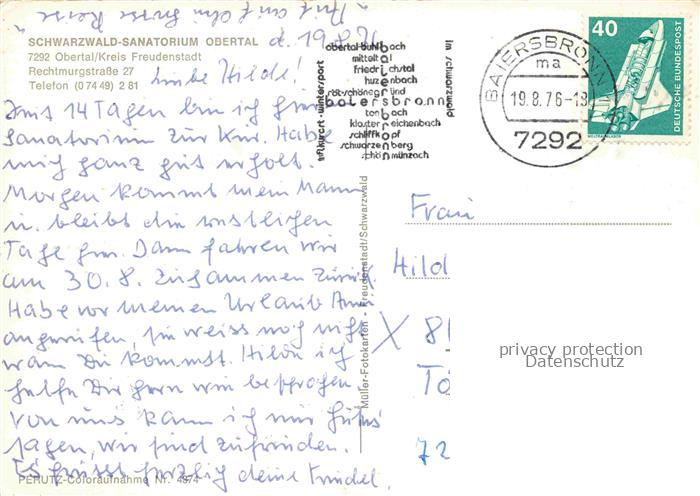 SCHWARZWALD-SANATORIUM OBERTAL
7292 Obertal/Kreis Freudenstadt
Rechtmurgstraße 27
Telefon (0 74 49) 2 81
d. 19.8.76
Liebe Hilde!
14 Tagen bin ich hier
Sanatorium zur Kur. Habe
mich ganz gut erholt.
Morgen kommt mein Mann
u. bleibt die restlichen
Tage hier. Dann fahren wir
am 30.8. zusammen zurück.
Habe vor meinem Urlaub
angerufen, sie weiss noch nicht
wann Du kommst. Hilde ich
helfe Dir gern wie besprochen.
Von uns kann ich nur Gutes
sagen, wir sind zufrieden.
Es grüsst herzlich deine
PERUTZ-Coloraufnahme Nr. 4874
Müller-Fotokarten - Freudenstadt/Schwarzwald
obertal-buhlbach
mitteltal
friedrichstal
huzenbach
röt-schönegründ
baiersbronn
tonbach
klosterreichenbach
schliffkopf
schwarzenberg
schönmünzach
luftkurort · wintersport
im schwarzwald
BAIERSBRONN 1
ma
19.8.76-18
7292
40
DEUTSCHE BUNDESPOST
WELTRAUMLABOR
Frau
Hild
X 8
Tö
72
privacy protection
Datenschutz